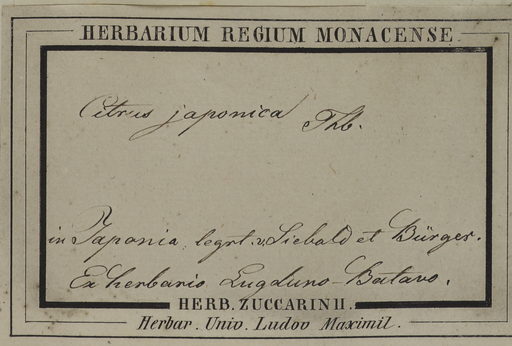 HERBARIUM REGIUM MONACENSE.
Citrus japonica Thb.
in Japonia, legrt. v. Siebold et Bürger.
Ex herbario Lugduno-Batavo.
HERB. ZUCCARINII.
Herbar. Univ. Ludov Maximil.